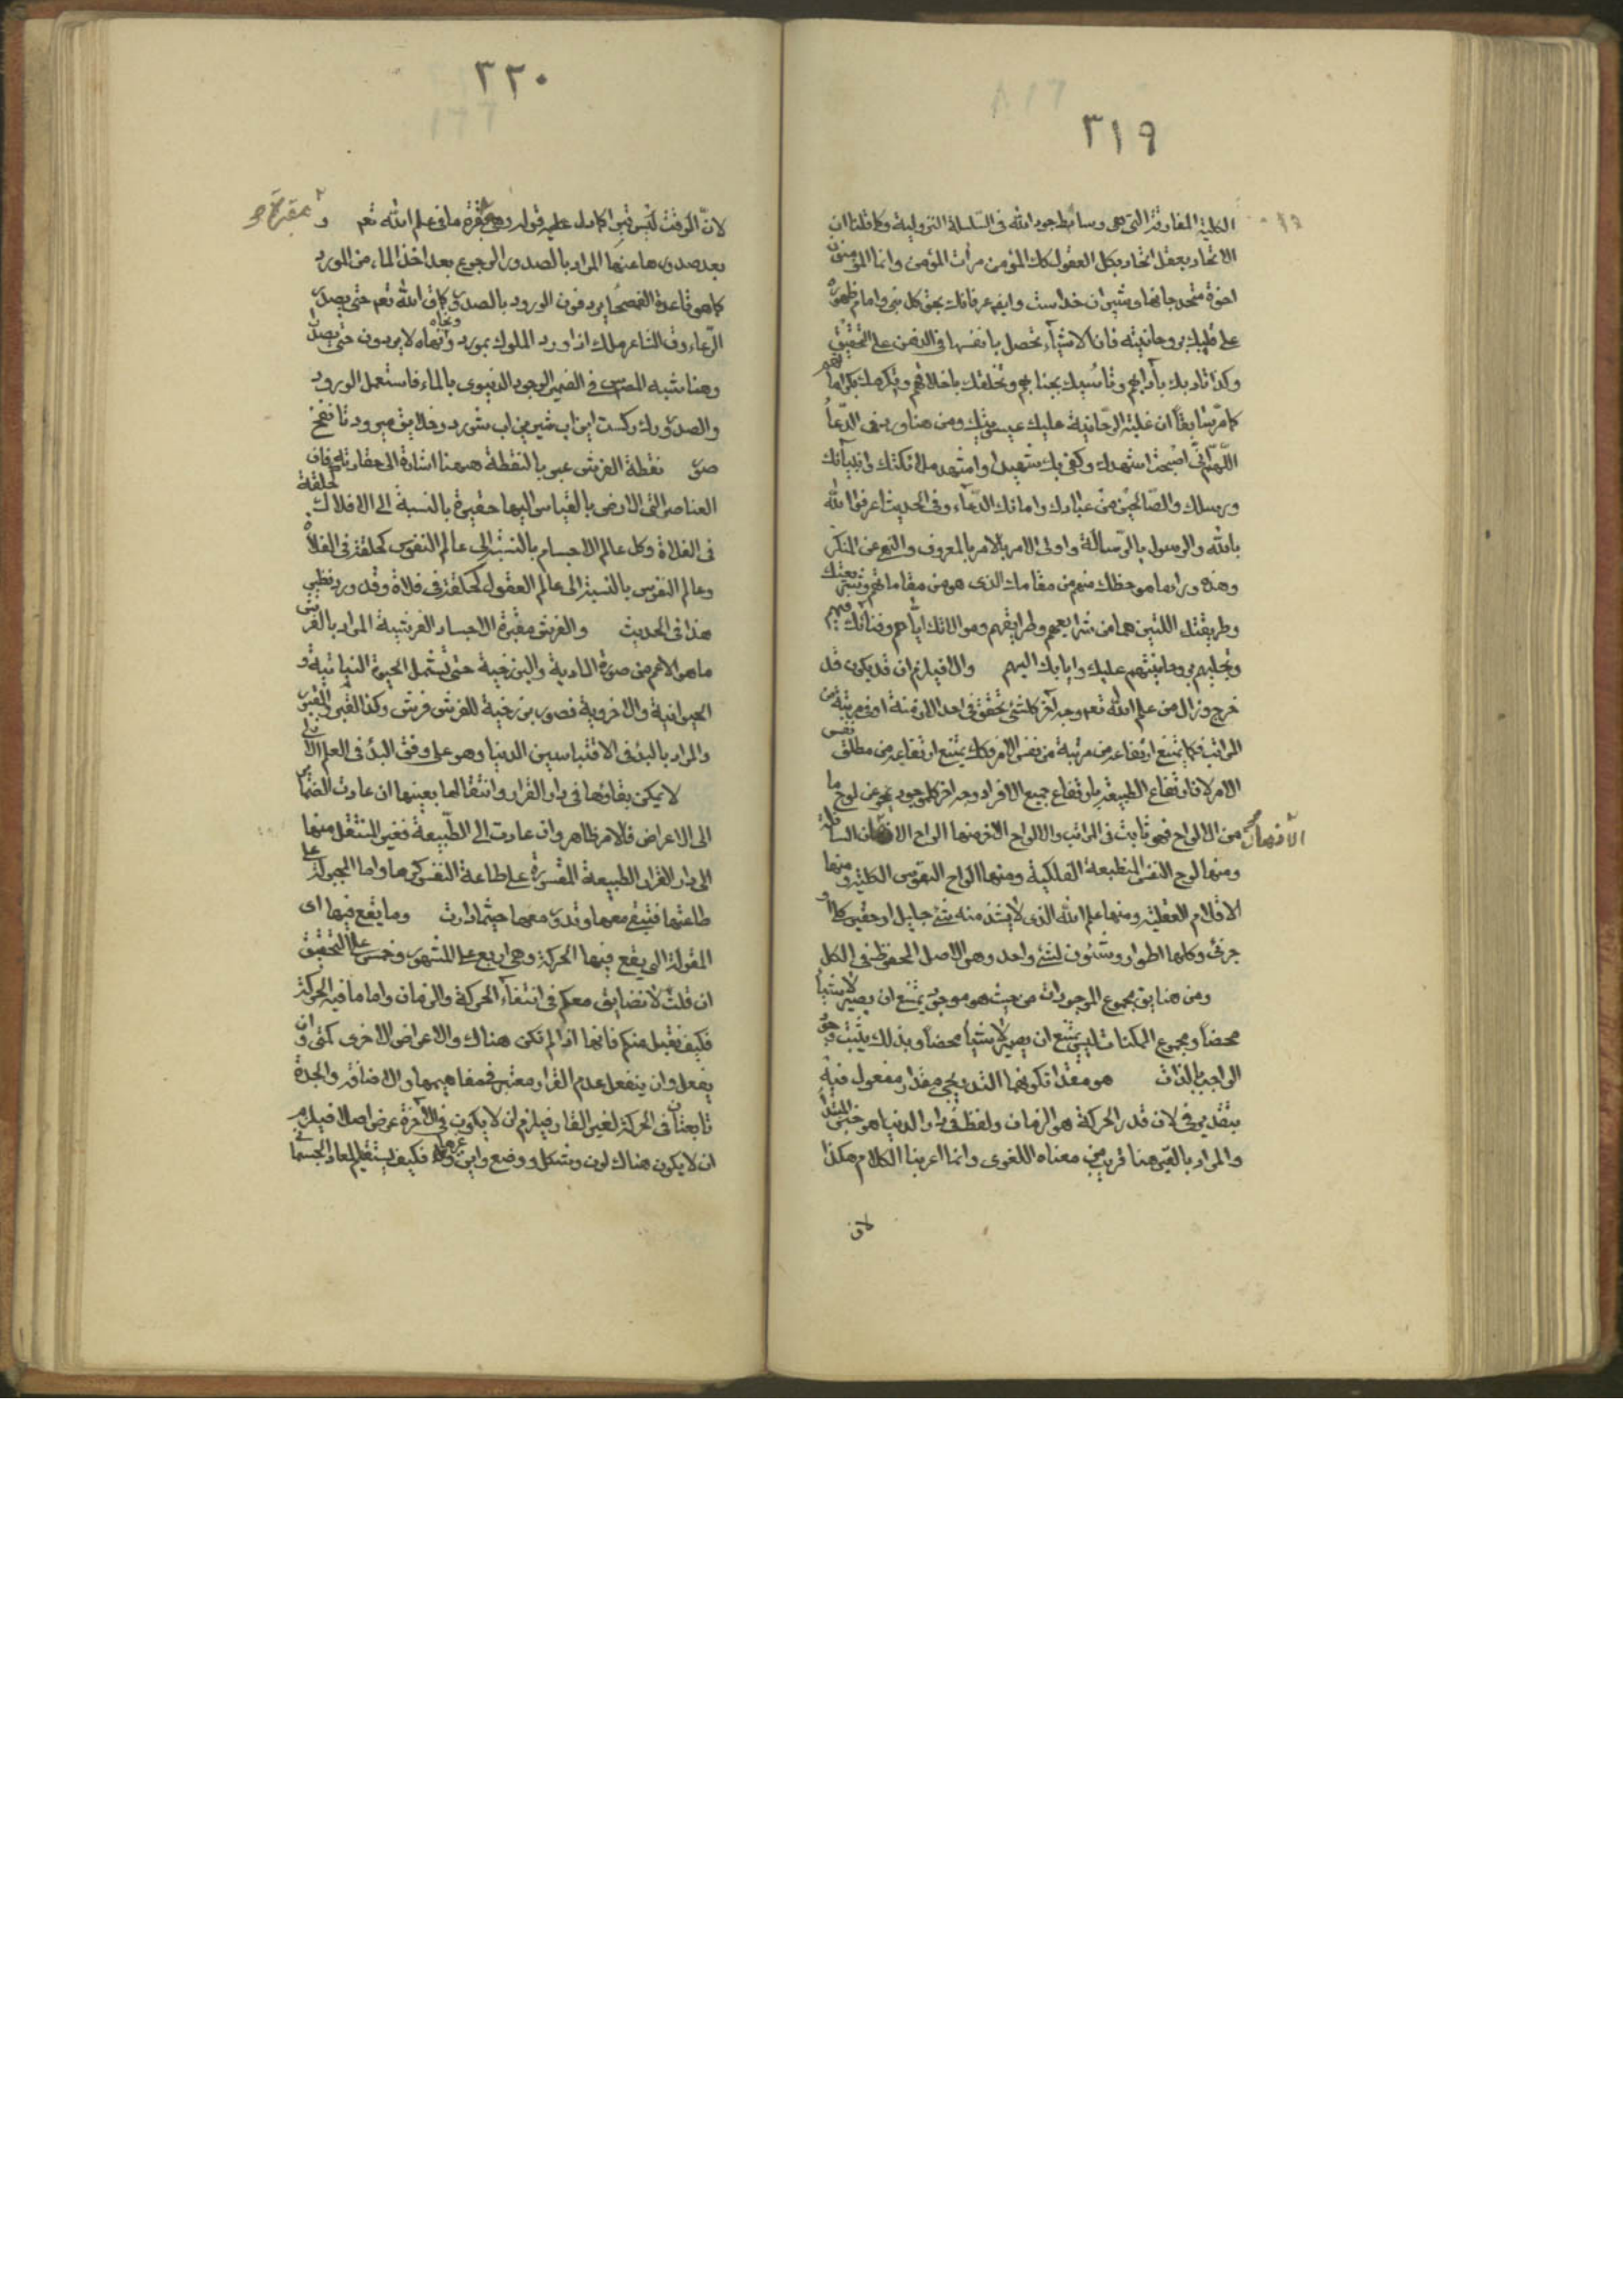 ٣١٩
الكلية المفارقة التي هي وسائط جود الله في السلسلة النزولية وكما قلنا ان
الاتحاد بعقل اتحاد بكل العقول كك المؤمن مرآت المؤمن وانما المؤمنون
اخوة متحد جانهاى شيران خداست وايض عرفانك بحق كل نبى وامام ظهوره
على قلبك بروحانيته فان الاشياء تحصل بانفسها في الذهن على التحقيق
وكذا تادبك بآدابهم وتخلقك باخلاقهم وتكرمك بكراماتهم
كما مر سابقا ان غلبة الروحانية عليك ومن هنا ورد في الدعاء
اللهم انى اصبحت اشهدك وكفى بك شهيدا واشهد ملائكتك وانبيائك
ورسلك والصالحين من عبادك وامائك الدعاء وفي الحديث اعرفوا الله
بالله والرسول بالرسالة واولى الامر بالامر بالمعروف والنهى عن المنكر
وهذه ورائها هو حظك منهم من مقامك الذى هو من مقاماتهم وشريعتك
وطريقتك اللتين هما من شرايعهم وطرايقهم وموالاتك اياهم وفنائك فيهم
وتجليهم بروحانيتهم عليك وايابك اليهم والا فيلزم ان قد يكون قد
خرج وزال من علم الله تعم وجه آخر كلشئ تحقق في احد الازمنة او في مرتبة من
المراتب فكما يمتنع ارتفاعه من مرتبة من نفس الامر فكك يمتنع ارتفاعه من مطلق نفس
الامر لان ارتفاع الطبيعة بارتفاع جميع الافراد وجه اخر كل موجود يمحو عن لوح ما
من الالواح فهو ثابت في المراتب والالواح الاخر منها الواح الاذهان السافلة
الاذهان
ومنها لوح النفس المنطبعة الفلكية ومنها الواح النفوس الكلية ومنها
الاقلام العقلية ومنها علم الله الذى لا يشذ منه شئ جليل او حقير كلى او
جزئى وكلها اطوار وشئون لشئ واحد وهو الاصل المحفوظ في الكل
ومن هنا يق مجموع الموجودات من حيث هو موجود يمتنع ان يصير لا شيئا
محضا ومجموع الممكنات ليس يمتنع ان يصير لا شيئا محضا وبذلك يثبت وجود
الواجب بالذات هو مقدار تكونها التدريجى مقدار مفعول فيه
بتقدير في لان قدر الحركة هو الزمان ولفظ في دار الدنيا هو خبر المبتدأ
والمراد بالقبر هنا قريب من معناه اللغوى وانما اعربنا الكلام هكذا
لان
٣٢٠
لان الوقت ليس قبرا كما دل عليه قوله ومقبرة ما في علم الله تعم و
بعد صدورها عنها المراد بالصدور الرجوع بعد اخذ الماء من المورد
كما هو قاعدة الفصحاء يردفون الورود بالصدور وكما في كلام الله تعم حتى يصدر
الرعاء وقال الشاعر ملك اذا ورد الملوك بمورد ونحاه لا يردون حتى يصدرا
وهنا شبه المصنف في الضمير الوجود الدنيوى بالماء فاستعمل الورود
والصدور رك ركست اين آب شيرين آب شور در خلايق ميرود تا نفخ
صور نقطة الفرش عبر بالنقطة ههنا اشارة الى حقارته فان
العناصر التى الارض بالقياس اليها حقيرة بالنسبة الى الافلاك كحلقة
في الفلاة وكل عالم الاجسام بالنسبة الى عالم النفوس كحلقة في الفلاة
وعالم النفوس بالنسبة الى عالم العقول كحلقة في فلاة وقد ورد نظير
هذا في الحديث والفرش مقبرة الاجساد الفرشية المراد بالفرش
ما هو الاعم من صورة المادية والبرزخية حتى تشمل الحيوة النباتية و
الحيوانية والاخروية فصور برزخية للفرش فرش وكذا القبر والقبور
والمراد بالبدء في الاقتباسين الدنيا وهو على وفق البدء في العلم الازلى
لا يمكن بقاؤها في دار القرار وانتقالها بعينها ان عادت الضمائر
الى الاعراض فالامر ظاهر وان عادت الى الطبيعة فغير المنتقل منها
الى دار القرار الطبيعة المقسورة على طاعة النفس كرها واما المجبولة على
طاعتها فتبقى معها وتدور معها حيثما دارت وما يقع فيها اى
المقولة التى يقع فيها الحركة وهى اربع على المشهور وخمس على التحقيق
ان قلت لا نضايق معكم في انتفاء الحركة والزمان واما ما فيه الحركة
فكيف نقبل منكم فانها اذا لم تكن هناك والاعراض الاخرى كمتى وان
يفعل وان ينفعل عدم القرار معتبر في مفاهيمها والاضافة والجدة
تابعتان في الحركة لغير القار فيلزم ان لا يكون في الآخرة عرض اصلا فيلزم
ان لا يكون هناك لون وشكل ووضع واين وغيرها فكيف يستقيم المعاد الجسمانى